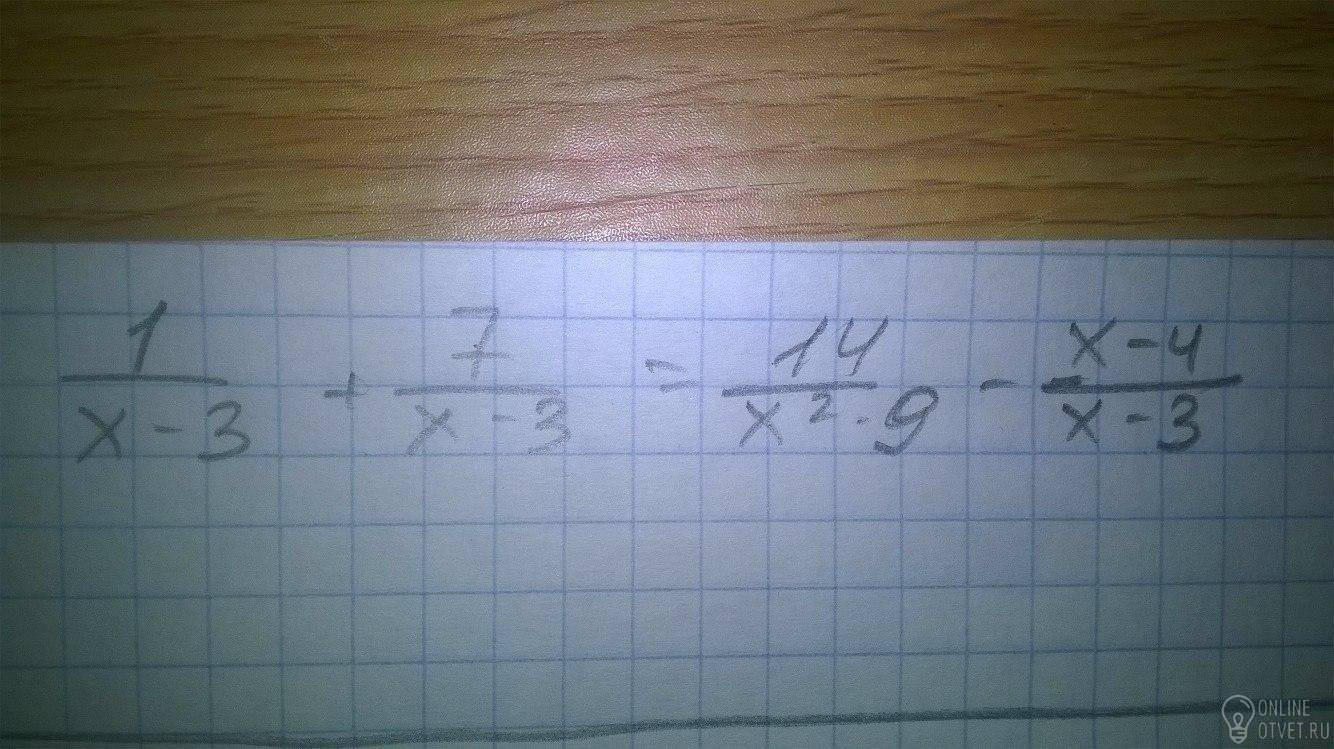 1/(x-3) + 7/(x-3) = 14/(x²-9) - (x-4)/(x-3)
ONLINE
OTVET.RU